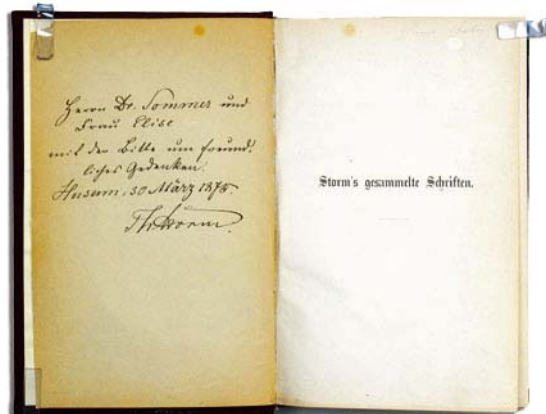 Herrn Dr. Sommer und
Frau Elise
mit der Bitte um freund,
liches Gedenken.
Husum, 30 März 1875.
ThStorm.
Storm's gesammelte Schriften.